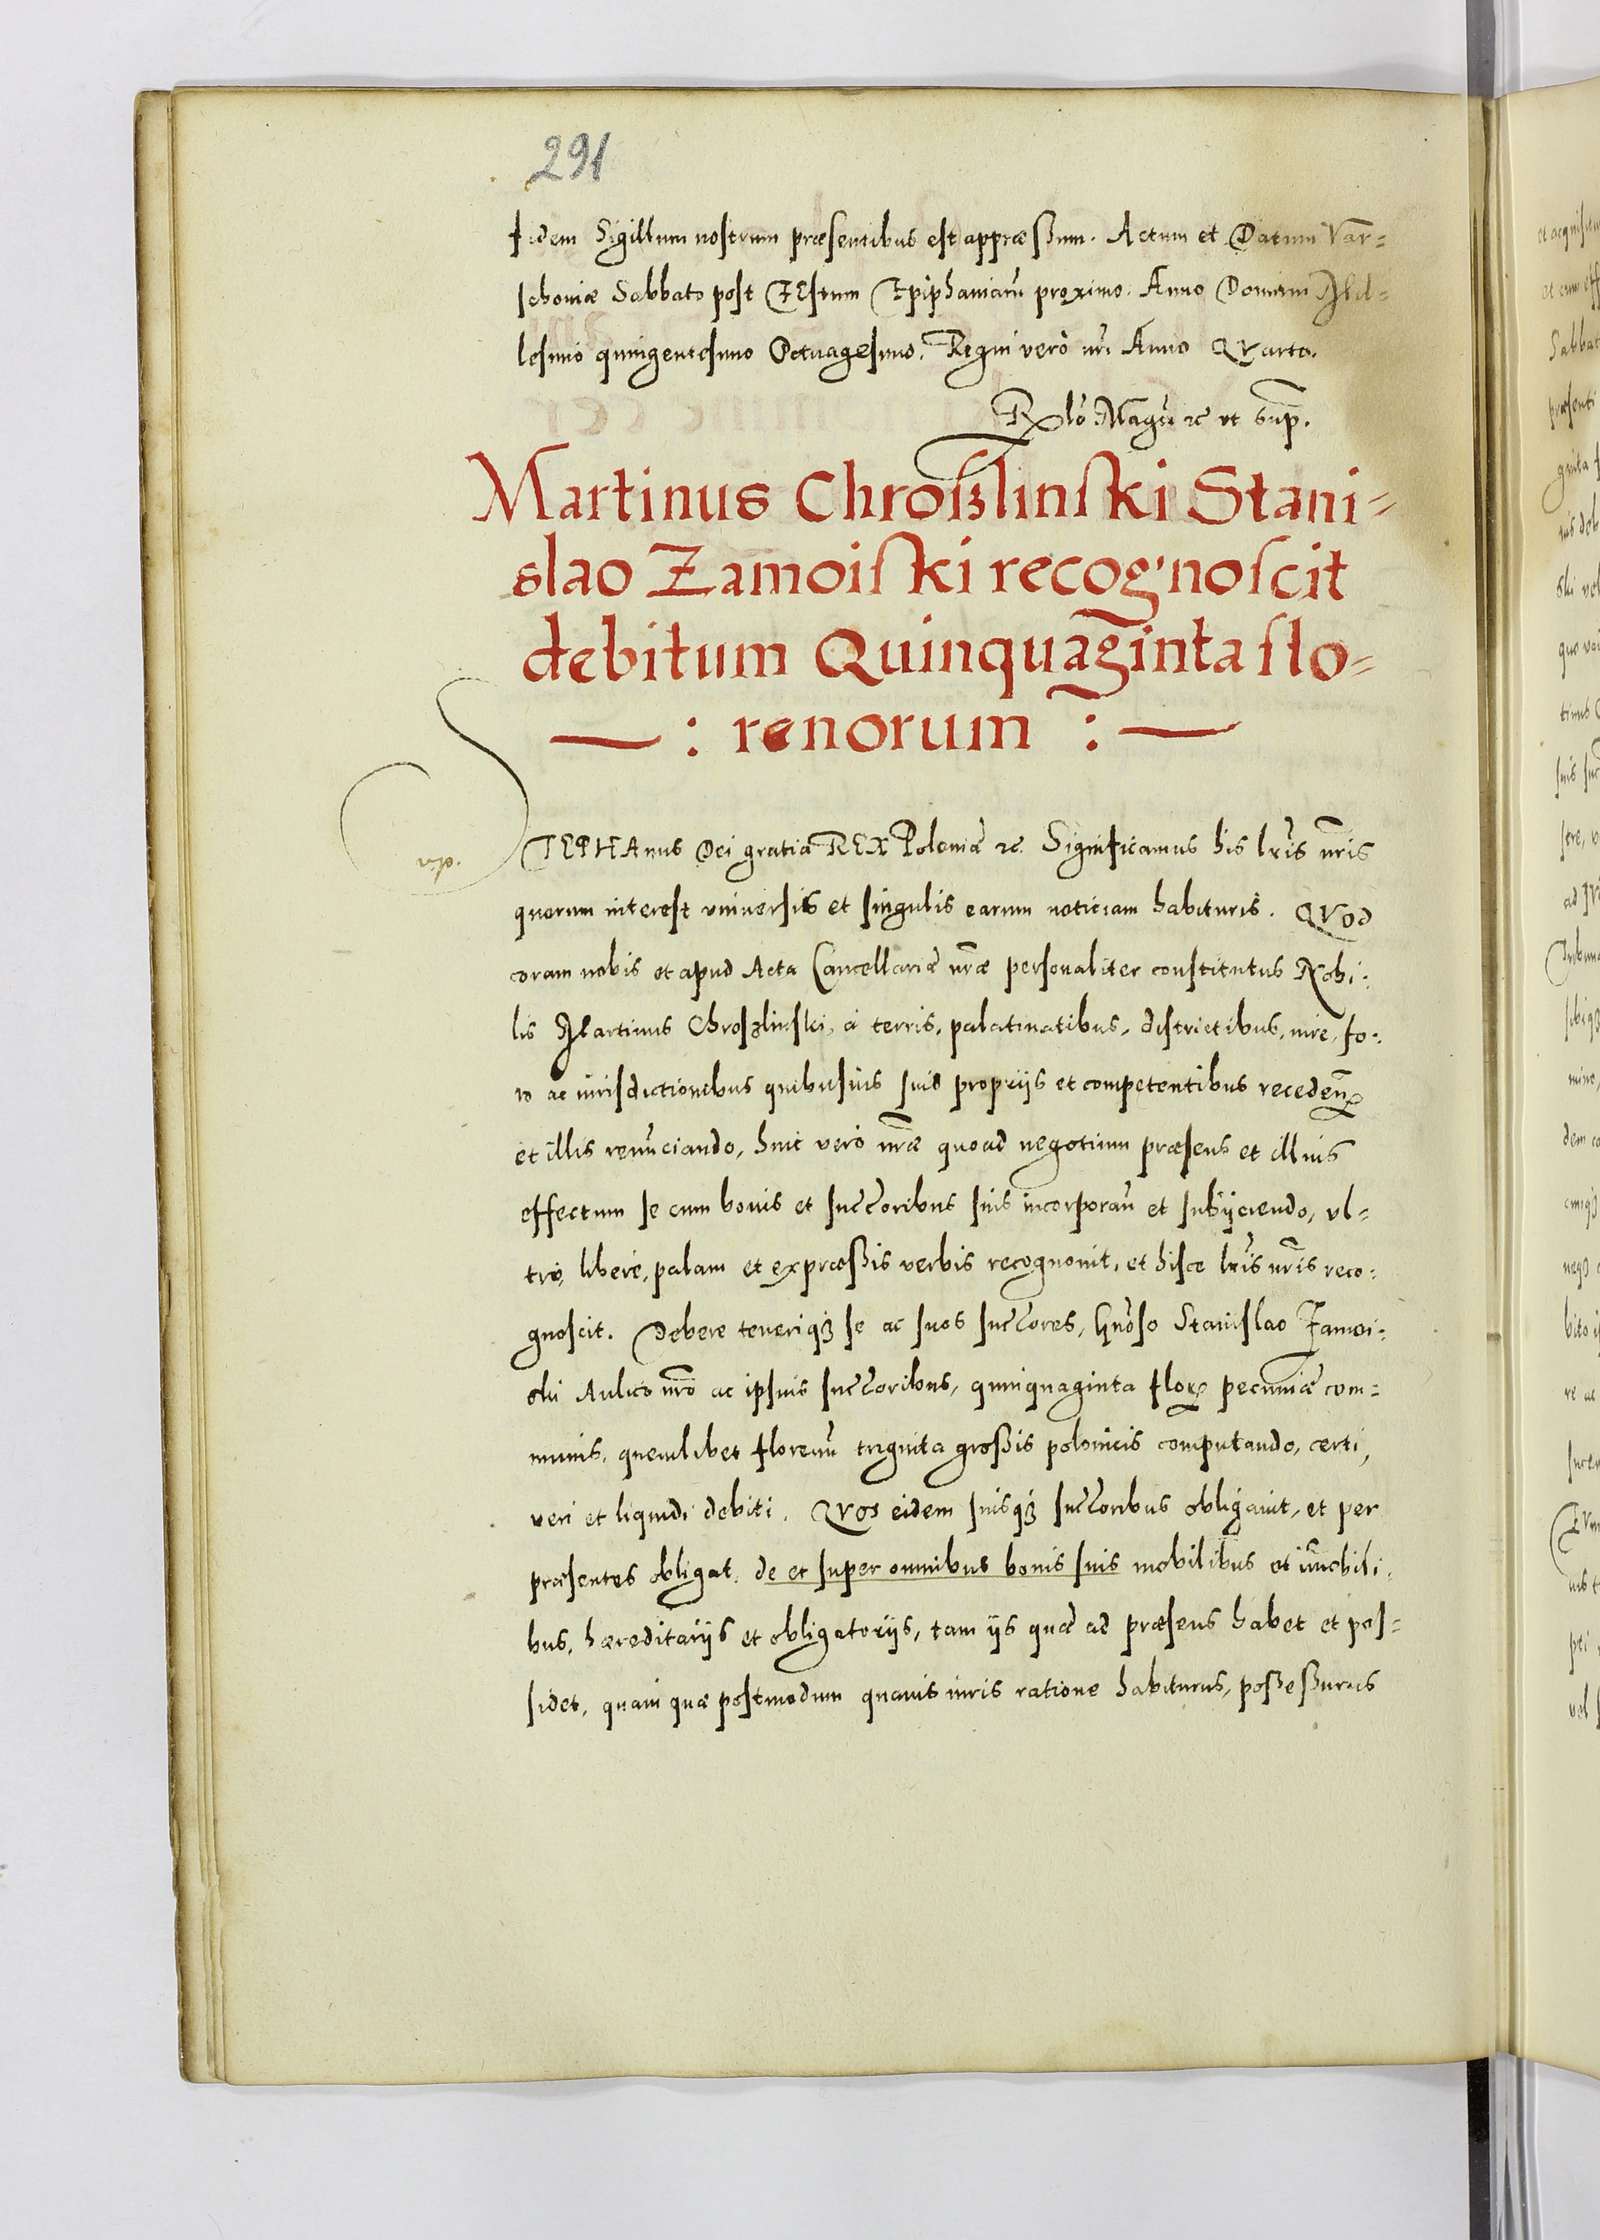 291
fidem Sigillum nostrum præsentibus est appræssum. Actum et Datum Var=
schoviæ Sabbato post FEstum Epiphaniarū proximo. Anno Domini Mil=
lesimo quingentesimo Octuagesimo. Regni verò nr̄i Anno QVarto.
Rlō Magci ꝛc vt sup̄.
Martinus Chroszlinski Stani=
slao Zamoiski recognoscit
debitum Quinquaginta flo=
: renorum :
STEPHAnus Dei gratia REX Poloniæ ꝛc. Significamus his lr̄is nr̄is
quorum interest vniuersis et singulis earum noticiam habituris. QVod
coram nobis et apud Acta Cancellariæ nr̄æ personaliter constitutus Nobi=
lis Martinus Chroszlinski, à terris, palatinatibus, districtibus, iure, fo=
ro ac iurisdictionibus quibusuis suis proprijs et competentibus recedeñ
et illis renūciando, huic verò nr̄æ quoad negotium præsens et illius
effectum se cum bonis et succ̄oribus suis incorporañ et subijciendo, vl=
trò, liberè, palam et expræssis verbis recognouit, et hisce lr̄is nr̄is reco=
gnoscit. Debere teneriqꝫ se ac suos succ̄ores, Gn̄oso Stanislao Zamoi=
ski Aulico nr̄o ac ipsius succ̄oribus, quinquaginta flor̄ pecuniæ com=
munis, quemlibet florenū triginta grossis polonicis computando, certi,
veri et liquidi debiti. QVos eidem suisqꝫ succ̄oribus obligauit, et per
præsentes obligat. de et super omnibus bonis suis mobilibus et im̄obili=
bus, hæreditarijs et obligatorijs, tam ijs quæ ad præsens habet et pos=
sidet, quam quæ postmodum quauis iuris ratione habiturus, possessurus